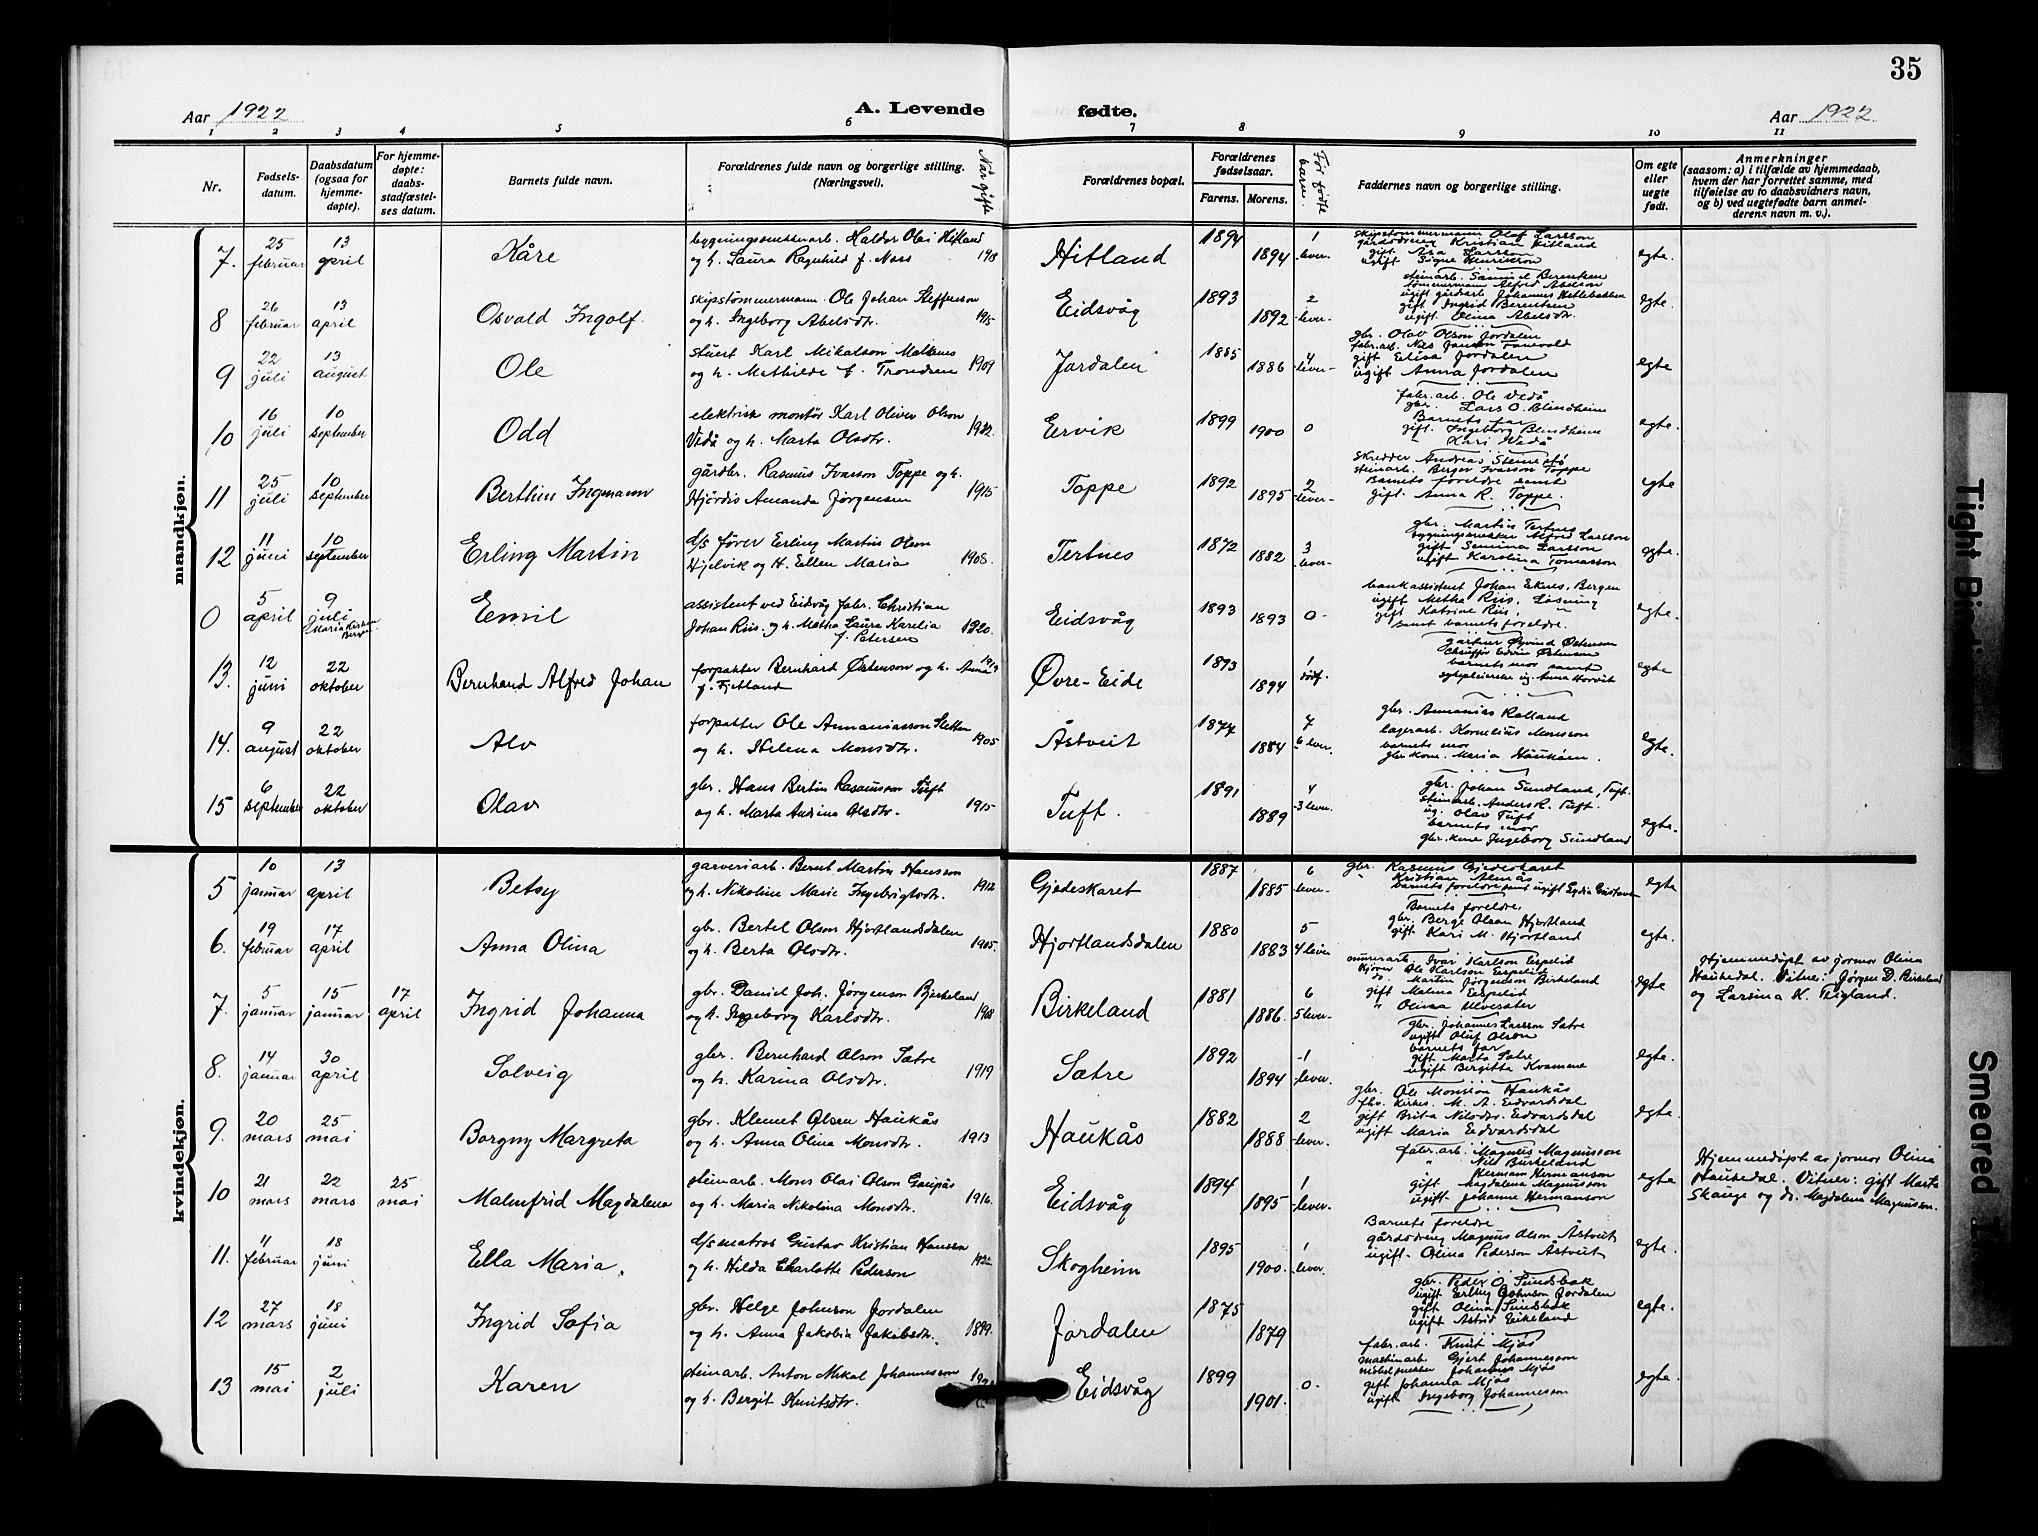 35
Aar 1922
A. Levende fødte.
Aar 1922
1 2 3 4 5 6 7 8 9 10 11
Nr.
Fødsels-
datum.
Daabsdatum
(ogsaa for
hjemme-
døpte).
For hjemme-
døpte:
daabs-
stadfæstel-
ses datum.
Barnets fulde navn.
Forældrenes fulde navn og borgerlige stilling.
(Næringsvei).
Når gifte
Forældrenes bopæl.
Forældrenes
fødselsaar.
Farens. Morens.
Før fødte
barn.
Faddernes navn og borgerlige stilling.
Om egte
eller
uegte
født.
Anmerkninger
(saasom: a) i tilfælde av hjemmedaab,
hvem der har forrettet samme, med
tilføielse av to daabsvidners navn,
og b) ved uegtefødte barn anmel-
derens navn m. v.).
mandkjøn.
7. 25 februar 13 april Kåre
Haldor Olai Hitland
og h. Laura Ragnhild f. Ness 1918
Hitland 1894 1894 1 lever-
skipstømmermann Olaf Larsson
gårdsdreng Kristian Hitland
gift Åsa Larsson
ugift Signe Henrikson
egte.
8 26 februar 13 april Osvald Ingolf.
skipstømmermann. Ole Johan Steffenson
og h. Ingeborg Abelsdtr. 1915
Eidsvåg 1893 1892 2 -lever-
steinarb. Samuel Berentsen
tømmermann Alfred Abelson
gift Ingrid Berentsen
ugift. Olina Abelsdtr.
egte.
9 22 juli 13 august Ole
stuert Karl Mikalson
og h. Mathilde f. Trondsen 1909
Jordalen 1885 1886 4 -lever-
gbr. Olav Olson Jordalen
gift Elisa Jordalen
ugift Anna Jordalen
egte
10 16 juli 10 september Odd
elektrisk montør Karl Oliver Olson
Vedå og h. Marta Olsdtr.
Ervik 1899 1900 0
fabr. arb. Ole Vedå
gbr. Lars O. Blindheim
Barnets far
gift. Ingeborg Blindheim
" Kari Vedå
egte.
11 25 juli 10 september Berthin Ingmann
gårdbr. Rasmus Ivarson Toppe og h.
Hjørdis Amanda Jørgensen 1915
Toppe 1892 1895 2 -lever-
skredder Andreas
steinarb. Berger Ivarson Toppe
Barnets foreldre samt
gift. Anna R. Toppe.
egte
12 11 juni 10 september Erling Martin
d/s fører Erling Martin Olson
Hjelvik og H. Ellen Maria 1908.
Tertnes 1872 1882 3 -lever-
gbr. Martin Tertnes
Alfred Larsson
gift Semina Larsson
ugift Karolina Tomasson
egte.
0 5 april 9 juli Mariakirken Bergen Eemil
assistent ved Eidsvåg fabr. Christian
Johan Riis. og h. Metha Laura Karelia
f. Petersen 1920.
Eidsvåg 1893 1893 0-
bankassistent Johan Eknes, Bergen
ugift Metha Riis,
gift Katrine Riis,
samt barnets foreldre.
egte.
13. 12 juni 22 oktober Bernhard Alfred Johan
forpakter Bernhard Østenson og h. Anna
f. Fjetland
Øvre-Eide 1893 1894 1 dødf.
gartner Øyvind Østenson
barnets mor samt
egte
14. 9 august 22 oktober Alv
forpakter Ole Annaniasson Sletten
og h. Helena Monsdtr. 1905
Åstveit 1874 1884 7 6 lever.
gbr. Annanias Kalland
lagerarb. Kornelius Monsson
barnets mor
gbr kone. Maria Haukåen.
egte.
15 6 september 22 oktober Olav
gbr. Hans Bertin Rasmusson Tuft
og h. Marta Andrina Olsdtr. 1915
Tuft. 1891 1889 4 -3 lever.
gbr. Johan Sundland, Tuft.
steinarb. Anders R. Tuft.
ug. Olav Tuft
barnets mor
gbr. kone Ingeborg Sundland
egte.
kvindekjøn.
5 10 januar 13 april Betsy
garveriarb. Bernt Martin Hansson
og h. Nikoline Marie Ingebrigtsdtr. 1912
Gjedeskaret 1887 1885 6 lever-
gbr. Rasmus Gjedeskaret
" Kristian Almås
barnets foreldre samt ugift Lydia
egte
6. 19 februar 17 april Anna Olina
gbr. Bertel Olson Hjortlandsdalen
og h. Berta Olsdtr. 1905.
Hjortlandsdalen 1880 1883 5 4 lever
Barnets foreldre.
gbr. Berge Olson Hjortland
gift Kari M. Hjortland
egte.
7. 5 januar 15 januar 17 april Ingrid Johanna
gbr. Daniel Joh. Jørgenson Birkeland
og h. Ingeborg Karlsdtr. 1908
Birkeland 1881 1886. 6 5 lever-
murerarb. Ivar Karlson Espelid
Kjører Ole Karlson Espelid
do Martin Jørgenson Birkeland
gift Malina Espelid
" Olina Ulvesæter
egte
Hjemmedøpt av jormor Olina
Haukedal. Vitner: Jørgen D. Birkeland
og Larsina K. Teigland.
8. 14 januar 30 april Solveig
gbr. Bernhard Olson Sætre
og h. Karina Olsdtr. 1919
Sætre 1892 1894 -1 -lever.
gbr. Johannes Larsson Sætre
ugift Oluf Olson
barnets far
gift Marta Sætre
ugift Birgitta Kvamme
egte.
9. 20 mars 25 mai Borgny Margreta
gbr. Klemet Olsen Haukås
og h. Anna Olina Monsdtr. 1913
Haukås 1882 1888 2 -lever.
gbr. Ole Monson Haukås
fhv. kirkes. M. A. Eidvardsdal
gift Brita Nilsdtr. Eidvardsdal
ugift Maria Eidvardsdal
egte.
10 21 mars 22 mars 25 mai Malmfrid Magdalena
steinarb. Mons Olai Olson Gaupås
og h. Maria Nikolina Monsdtr. 1916.
Eidsvåg 1894 1895 1 -lever.
fabr. arb. Magnus Magnusson
" Nils Burkeland
" Hermann Hermanson
gift Magdalena Magnusson
ugift Johanne Hermanson
egte
Hjemmedøpt av jormor Olina
Haukedal. Vitner: gift Marta
Skauge og do. Magdalena Magnusson.
11. 11 februar 18 juni Ella Maria.
d/s matros Gustav Kristian Hansson
og h. Hilda Charlotte Pederson
Skogheim 1895 1900. 1 lever.
Barnets foreldre
gårdsdreng Magnus Olson Åstveit
ugift. Olina Pederson Åstveit
egte.
12 27 mars 18 juni Ingrid Sofia
gbr. Helge Johnson Jordalen
og h. Anna Jakobia Jakobsdtr. 1899.
Jordalen 1875 1879
gbr. Peder O. Sundsbak
ugift Erling Johnson Jordalen
gift Olina Sundsbak
ugift Astrid Eikeland
egte.
13 15 mai 2 juli Karen
steinarb. Anton Mikal Johannesson
og h. Bergit Knutsdtr.
Eidsvåg 1899 1901. 0-
fabr. arb. Knut Mjøs
maskinarb. Gjert Johannesson
møbelsnekker Johannes Mjøs
gift Johanna Mjøs
ugift Ingeborg Johannesson
egte.
Tight Bindi
Smeared